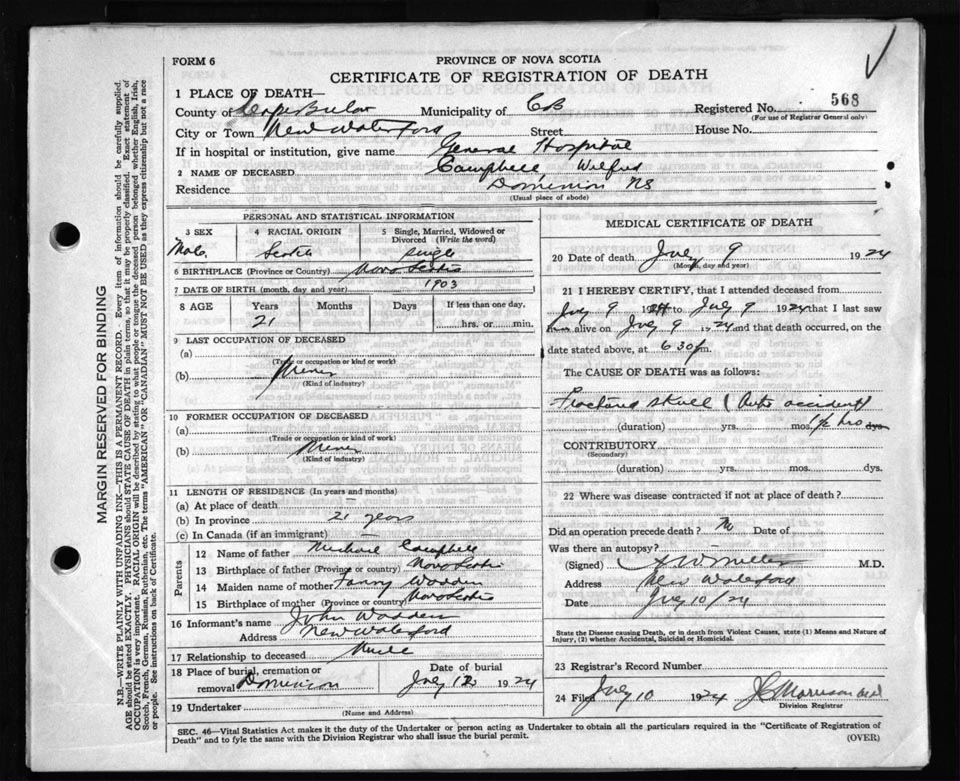 FORM 6
PROVINCE OF NOVA SCOTIA
CERTIFICATE OF REGISTRATION OF DEATH
1 PLACE OF DEATH—
County of Cape Breton Municipality of C B Registered No. 568
(For use of Registrar General only)
City or Town New Waterford Street House No.
If in hospital or institution, give name General Hospital
2 NAME OF DECEASED Campbell, Wilfred
Residence Dominion NS
(Usual place of abode)
PERSONAL AND STATISTICAL INFORMATION
3 SEX 4 RACIAL ORIGIN 5 Single, Married, Widowed or Divorced (Write the word)
Male Scotch Single
6 BIRTHPLACE (Province or Country) Nova Scotia
7 DATE OF BIRTH (month, day and year) 1903
8 AGE Years Months Days If less than one day,
21 hrs. or min.
9 LAST OCCUPATION OF DECEASED
(a)
(Trade or occupation or kind or work)
(b) Miner
(Kind of industry)
10 FORMER OCCUPATION OF DECEASED
(a)
(Trade or occupation or kind of work)
(b) Miner
(Kind of industry)
11 LENGTH OF RESIDENCE (In years and months)
(a) At place of death —
(b) In province 21 years
(c) In Canada (if an immigrant) —
Parents
12 Name of father Michael Campbell
13 Birthplace of father (Province or country) Nova Scotia
14 Maiden name of mother Fanny Wadden
15 Birthplace of mother (Province or country) Nova Scotia
16 Informant's name John Wadden
Address New Waterford
17 Relationship to deceased Uncle
18 Place of burial, cremation or removal Dominion Date of burial July 12 1924
19 Undertaker
(Name and Address)
MEDICAL CERTIFICATE OF DEATH
20 Date of death July 9 1924
(Month, day and year)
21 I HEREBY CERTIFY, that I attended deceased from
July 9 1924 to July 9 1924 that I last saw
him alive on July 9 1924 and that death occurred, on the
date stated above, at 6 30 p m.
The CAUSE OF DEATH was as follows:
Fractured skull (Auto accident)
(duration) yrs. mos. 1/2 hrs dys.
CONTRIBUTORY
(Secondary)
(duration) yrs. mos. dys.
22 Where was disease contracted if not at place of death?
Did an operation precede death? No Date of
Was there an autopsy? —
(Signed) M.D.
Address New Waterford
Date July 10/24
State the Disease causing Death, or in death from Violent Causes, state (1) Means and Nature of
Injury, (2) whether Accidental, Suicidal or Homicidal.
23 Registrar's Record Number
24 Filed July 10 1924 J C Morrison M D
Division Registrar
SEC. 46—Vital Statistics Act makes it the duty of the Undertaker or person acting as Undertaker to obtain all the particulars required in the "Certificate of Registration of
Death" and to fyle the same with the Division Registrar who shall issue the burial permit.
(OVER)
MARGIN RESERVED FOR BINDING
N.B.—WRITE PLAINLY WITH UNFADING INK—THIS IS A PERMANENT RECORD. Every item of information should be carefully supplied.
AGE should be stated EXACTLY. PHYSICIANS should STATE CAUSE OF DEATH in plain terms, so that it may be properly classified. Exact statement of
OCCUPATION is very important. RACIAL ORIGIN will be described by stating to what people or tongue the deceased person belonged whether English, Irish,
Scotch, French, German, Russian, Ruthenian, etc. The terms "AMERICAN" OR "CANADIAN" MUST NOT BE USED as they express citizenship but not a race
or people. See instructions on back of Certificate.